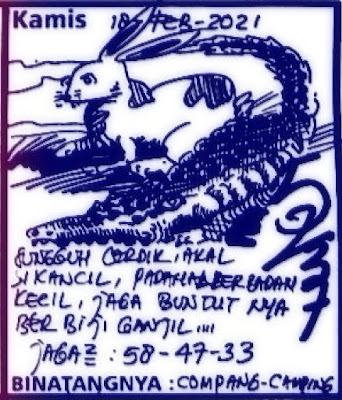 Kamis 18-FEB-2021
SUNGGUH CERDIK, AKAL
SI KANCIL, PADAHAL BERBADAN
KECIL, JAGA BUNTUT NYA
BER BIJI GANJIL....
JAGA2 : 58-47-33
BINATANGNYA : COMPANG-CAMPING